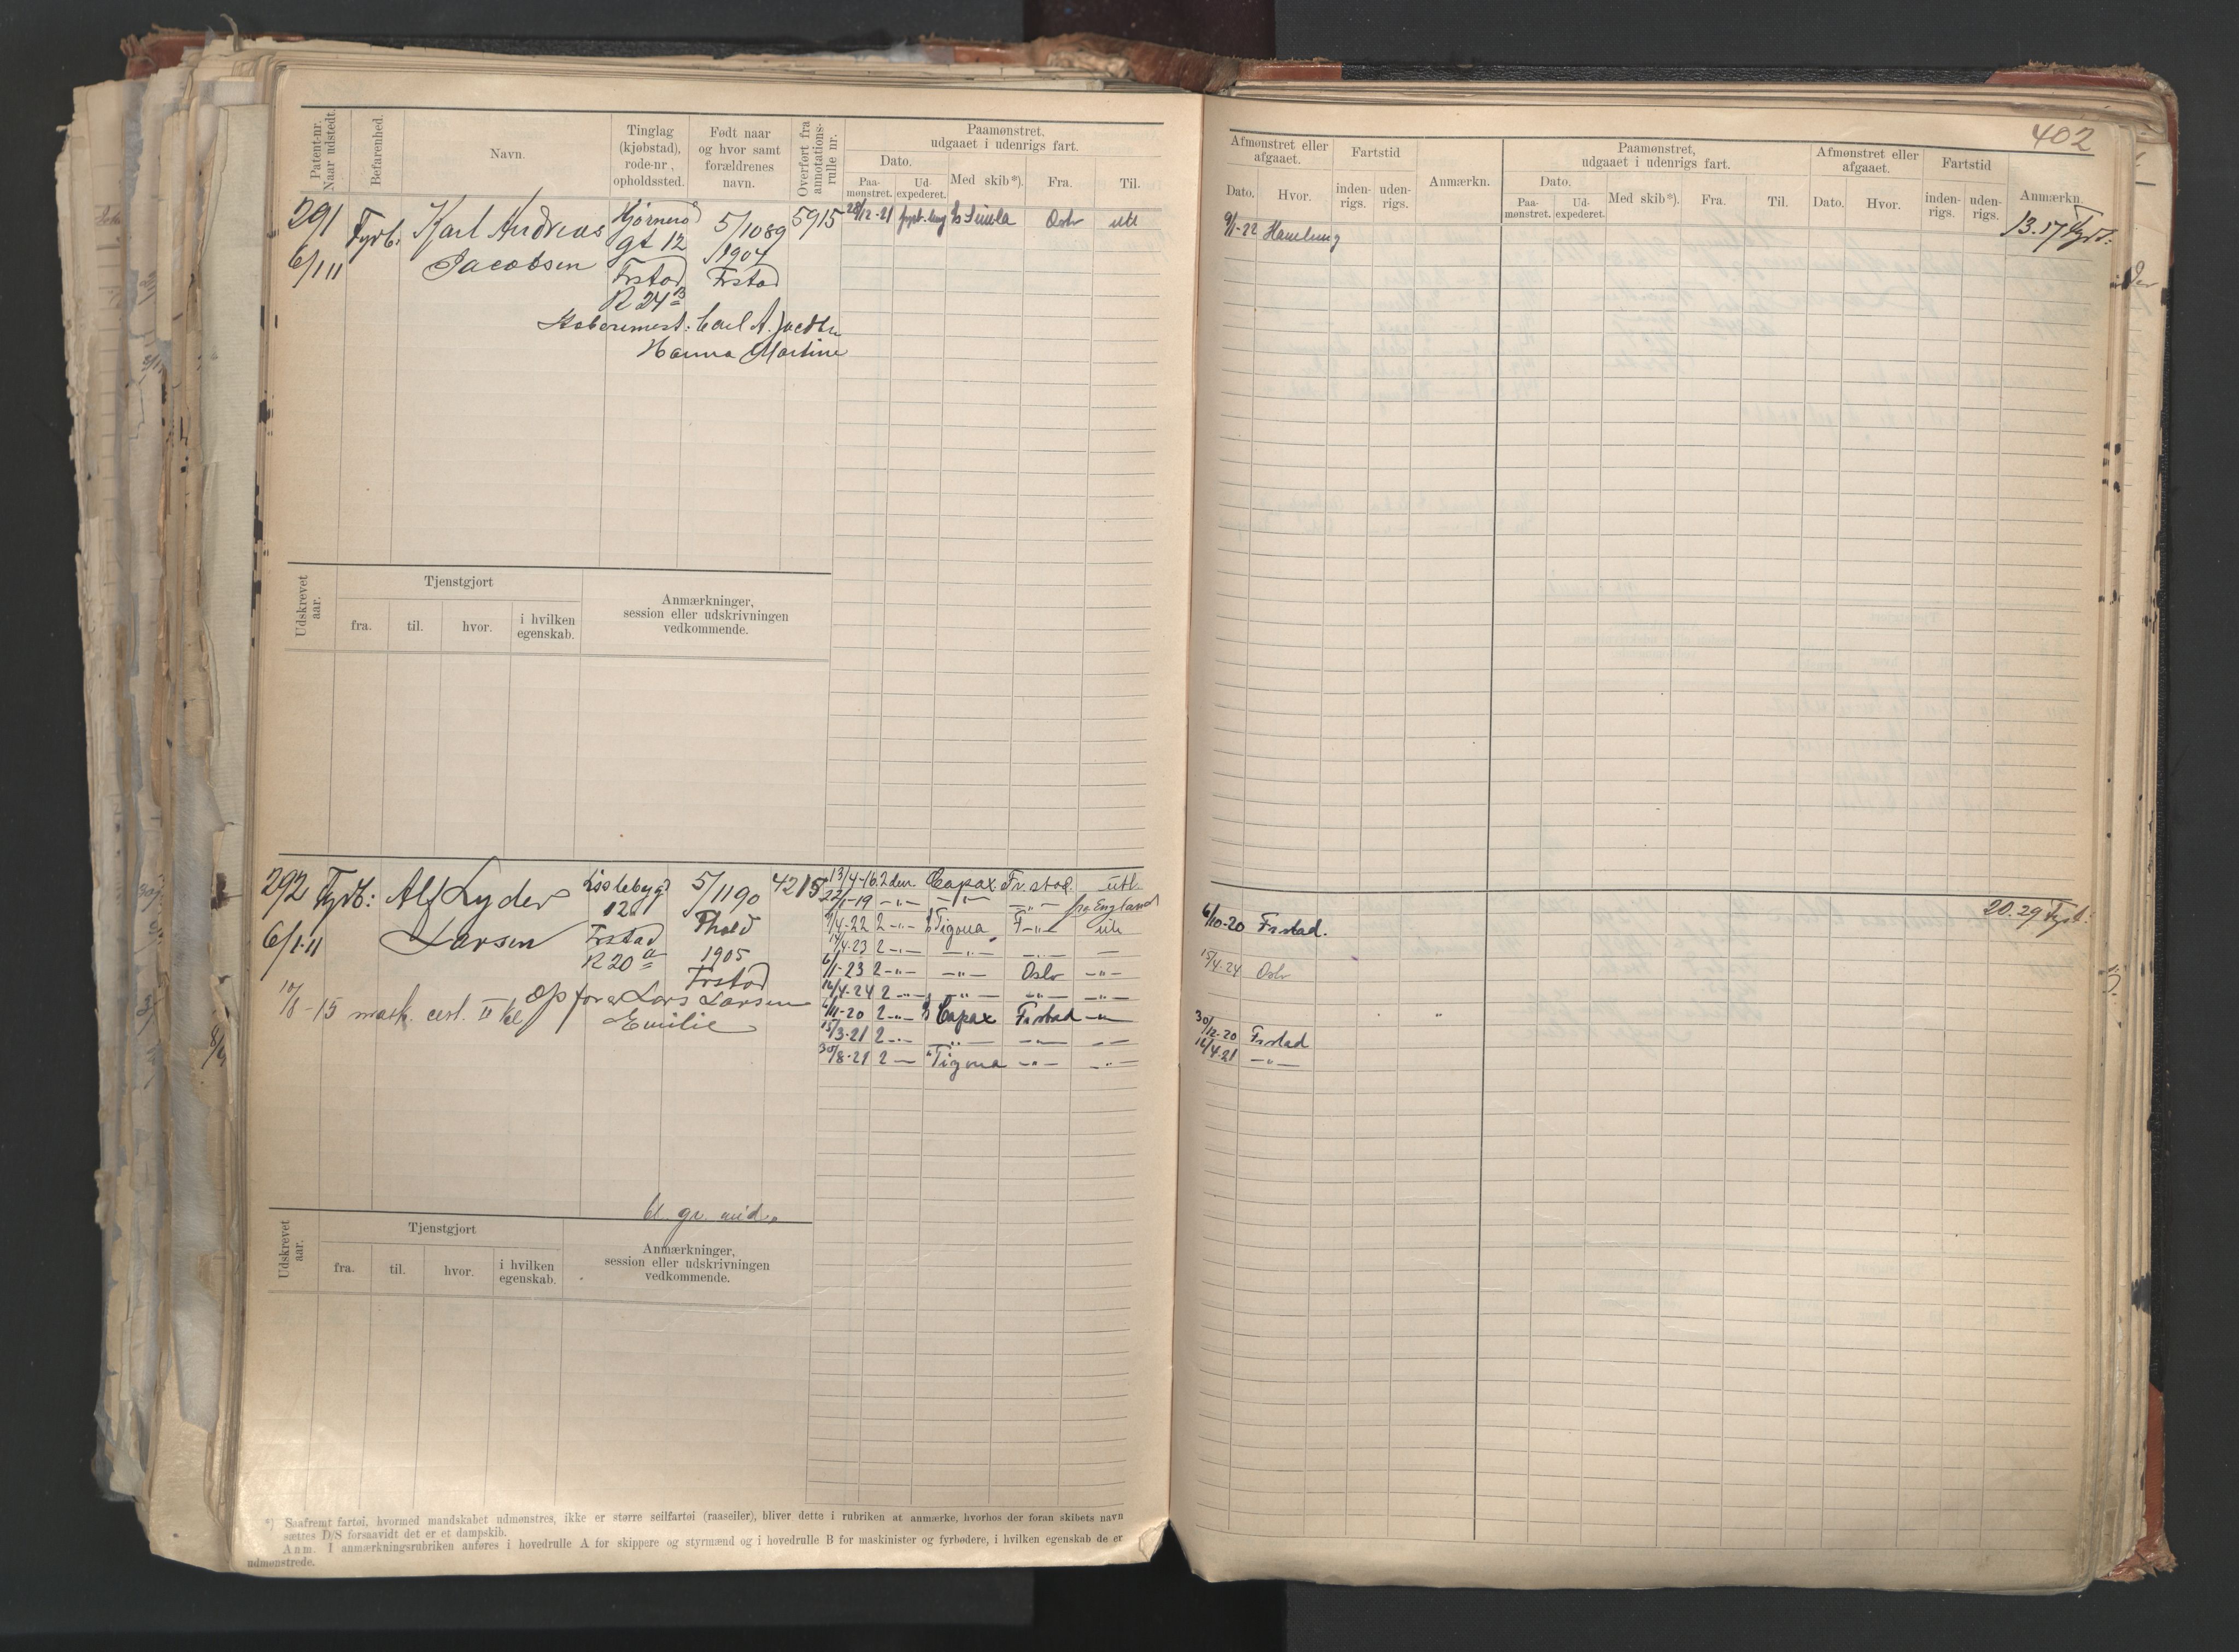 Patent-nr.
Naar udstedt.
Befarenhed.
Navn.
Tinglag
(kjøbstad),
rode-nr.,
opholdssted.
Født naar
og hvor samt
forældrenes
navn.
Overført fra
annotations-
rulle nr.
Paamønstret,
udgaaet i udenrigs fart.
Dato.
Paa-
mønstret.
Ud-
expederet.
Med skib*).
Fra.
Til.
291
6/1 11
Fyrb:
Karl Andreas
Jacobsen
gt 12
Frstad
R 24 B
5/10 89
1904
Frstad
Carl A.
Hanna Martine
5915
28/12-21
Simla
Oslo
utl
Udskrevet
aar.
Tjenstgjort
fra.
til.
hvor.
i hvilken
egenskab.
Anmærkninger,
session eller udskrivningen
vedkommende.
292
6/1 11
Fyrb:
Alf Lyder
Larsen
12
Frstad
R 20 a
5/11 90
1905
Frstad
4215
Lars Larsen
Emilie
-15 mask. cert. II kl
13/4-16 2den. Capax Fr.stad. utl.
22/1-19 -"- -"- -"- fra England
4-22 2 -"- Tigona F -"- utl
4-23 2 -"- -"- -"-
6/1-23 2 -"- -"- Oslo -"-
4-24 2 -"- -"- -"- -"-
6/11-20 2 -"- Capax Frstad -"-
15/3-21 2 -"- -"- -"- -"-
30/8-21 2 - Tigona -"- -"-
Udskrevet
aar.
Tjenstgjort
fra.
til.
hvor.
i hvilken
egenskab.
Anmærkninger,
session eller udskrivningen
vedkommende.
*) Saafremt fartøi, hvormed mandskabet udmønstres, ikke er større seilfartøi (raaseiler), bliver dette i rubriken at anmærke, hvorhos der foran skibets navn
sættes D/S forsaavidt det er et dampskib.
Anm. I anmærkningsrubriken anføres i hovedrulle A for skippere og styrmænd og i hovedrulle B for maskinister og fyrbødere, i hvilken egenskab de er
udmønstrede.
402
Afmønstret eller
afgaaet.
Dato.
Hvor.
Fartstid
inden-
rigs.
uden-
rigs.
Anmærkn.
Paamønstret,
udgaaet i udenrigs fart.
Dato.
Paa-
mønstret.
Ud-
expederet.
Med skib*).
Fra.
Til.
Afmønstret eller
afgaaet.
Dato.
Hvor.
Fartstid
inden-
rigs.
uden-
rigs.
Anmærkn.
9/1-22
13.17 Fyrb:
20.29 Fyrb:
6/10-20 Frstad.
15/4-24 Oslo
30/12-20 Frstad
4-21 -"-